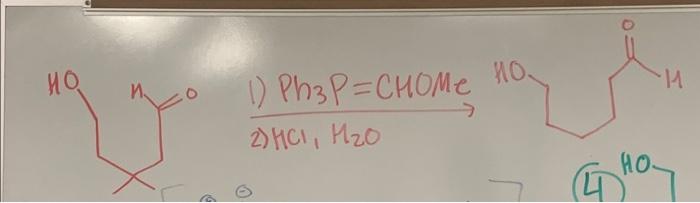 HO H O
1) Ph3P=CHOMe
2) HCl, H2O
HO O H
4 HO
⊕ ⊖